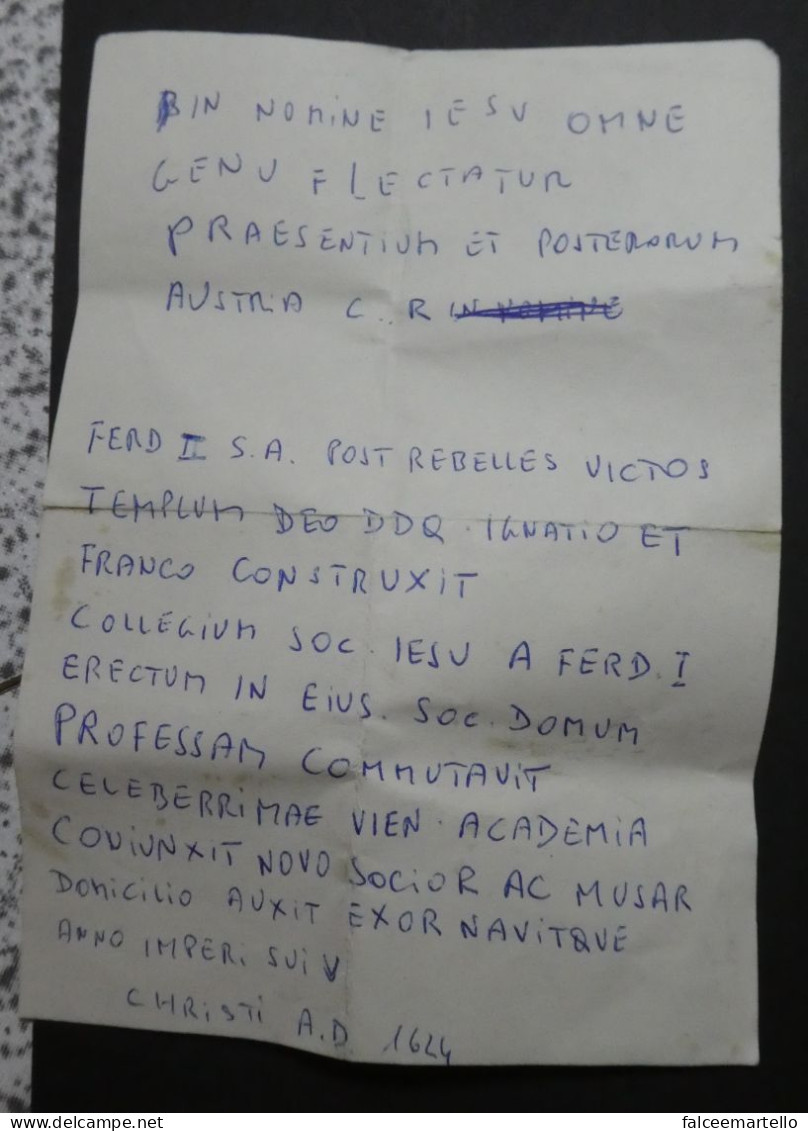 BIN NOMINE IESU OMNE
GENU FLECTATUR
PRAESENTIUM ET POSTERORUM
AUSTRIA C. R IN NOMINE
FERD II S.A. POST REBELLES VICTOS
TEMPLUM DEO DDQ. IGNATIO ET
FRANCO CONSTRUXIT
COLLEGIUM SOC. IESU A FERD. I
ERECTUM IN EIUS. SOC. DOMUM
PROFESSAM COMMUTAVIT
CELEBERRIMAE VIEN. ACADEMIA
COVIUNXIT NOVO SOCIOR AC MUSAR
DOMICILIO AUXIT EXOR NAVITQUE
ANNO IMPERI SUI V
CHRISTI A.D. 1624
falceemartello